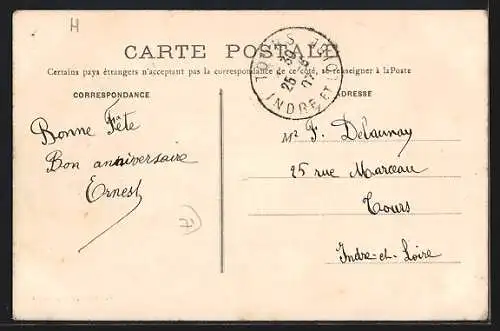 H
CARTE POSTALE
Certains pays étrangers n'acceptant pas la correspondance de ce côté, se renseigner à la Poste
CORRESPONDANCE
ADRESSE
TOURS
INDRE ET L
Bonne Fête
Bon anniversaire
Ernest
Mr F. Delaunay
25 rue Marceau
Tours
Indre-et-Loire